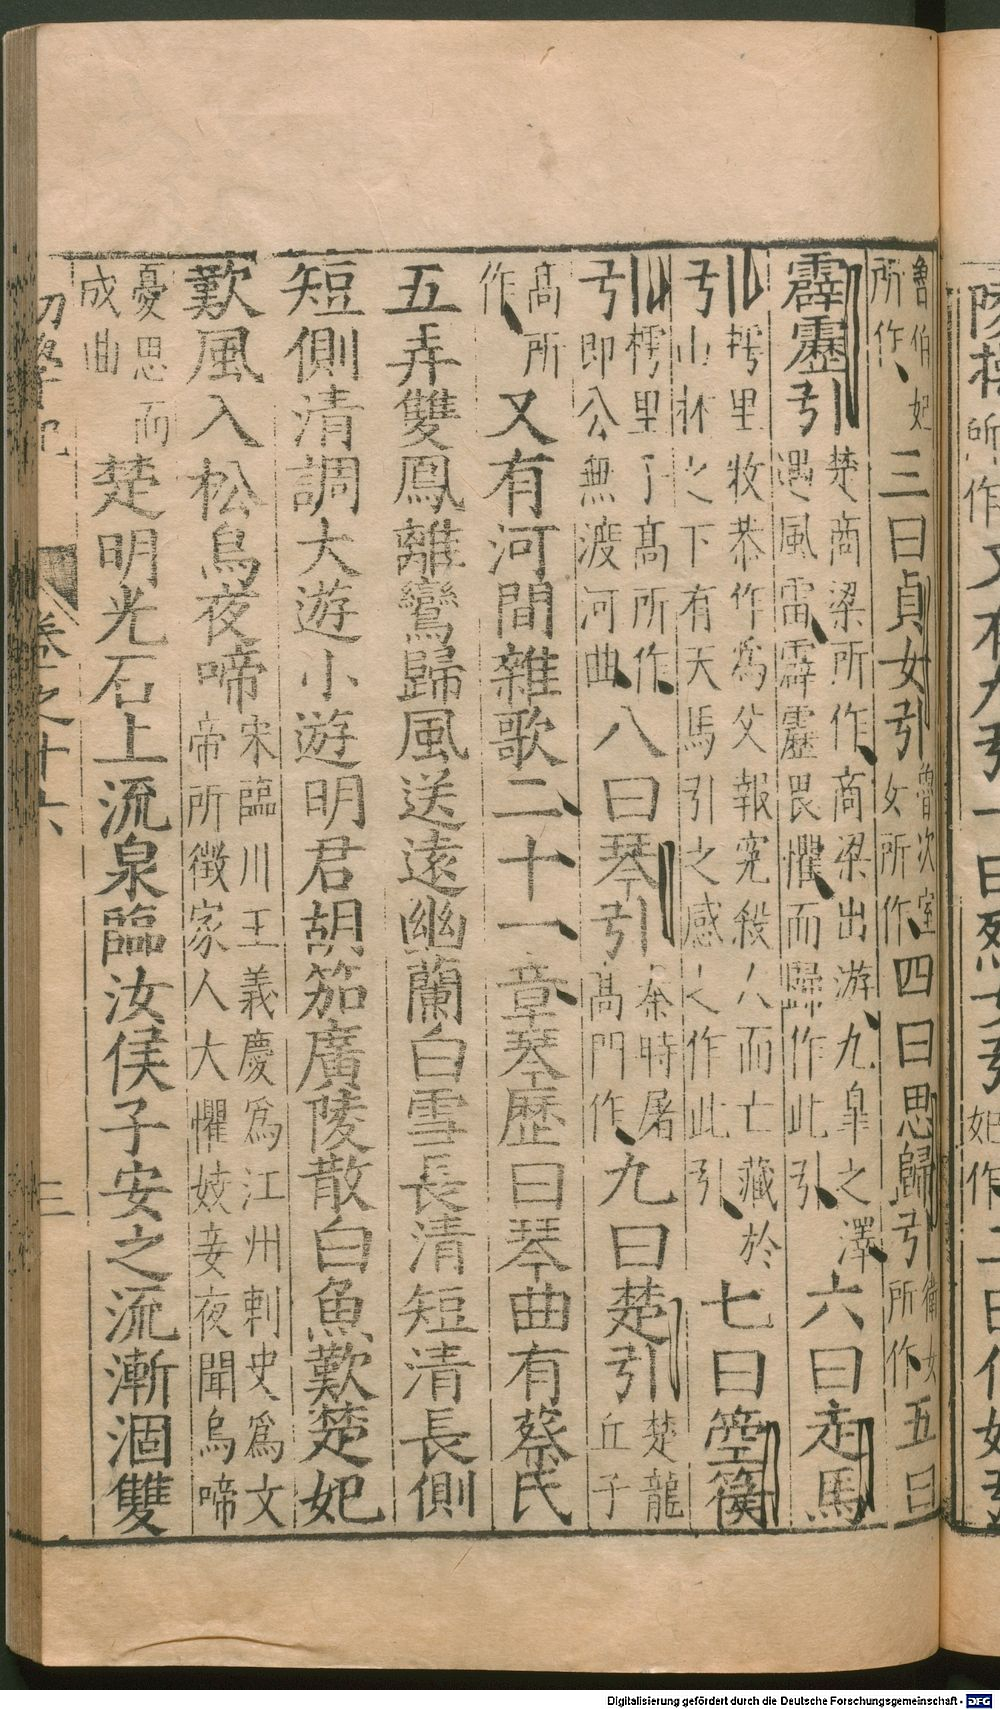 陵操所作又有九引一曰烈女引妃作二曰伯妃
魯伯妃所作三曰貞女引魯次室女所作四曰思歸引衛女所作五曰
霹靂引楚商梁所作商梁出游九皋之澤遇風雷霹靂畏懼而歸作此引六曰走馬
引樗里牧恭作爲父報寃殺人而亡藏於山林之下有天馬引之感之作此引七曰箜篌
引樗里子高所作即公無渡河曲八曰琴引秦時屠高門作九曰楚引楚龍丘子
高所作又有河間雜歌二十一章琴歷曰琴曲有蔡氏
五弄雙鳳離鸞歸風送遠幽蘭白雪長清短清長側
短側清調大遊小遊明君胡笳廣陵散白魚歎楚妃
歎風入松烏夜啼宋臨川王義慶爲江州刺史爲文帝所徵家人大懼妓妾夜聞烏啼
憂思而成曲楚明光石上流泉臨汝侯子安之流漸洄雙
初學記 卷之十六 三
Digitalisierung gefördert durch die Deutsche Forschungsgemeinschaft - DFG